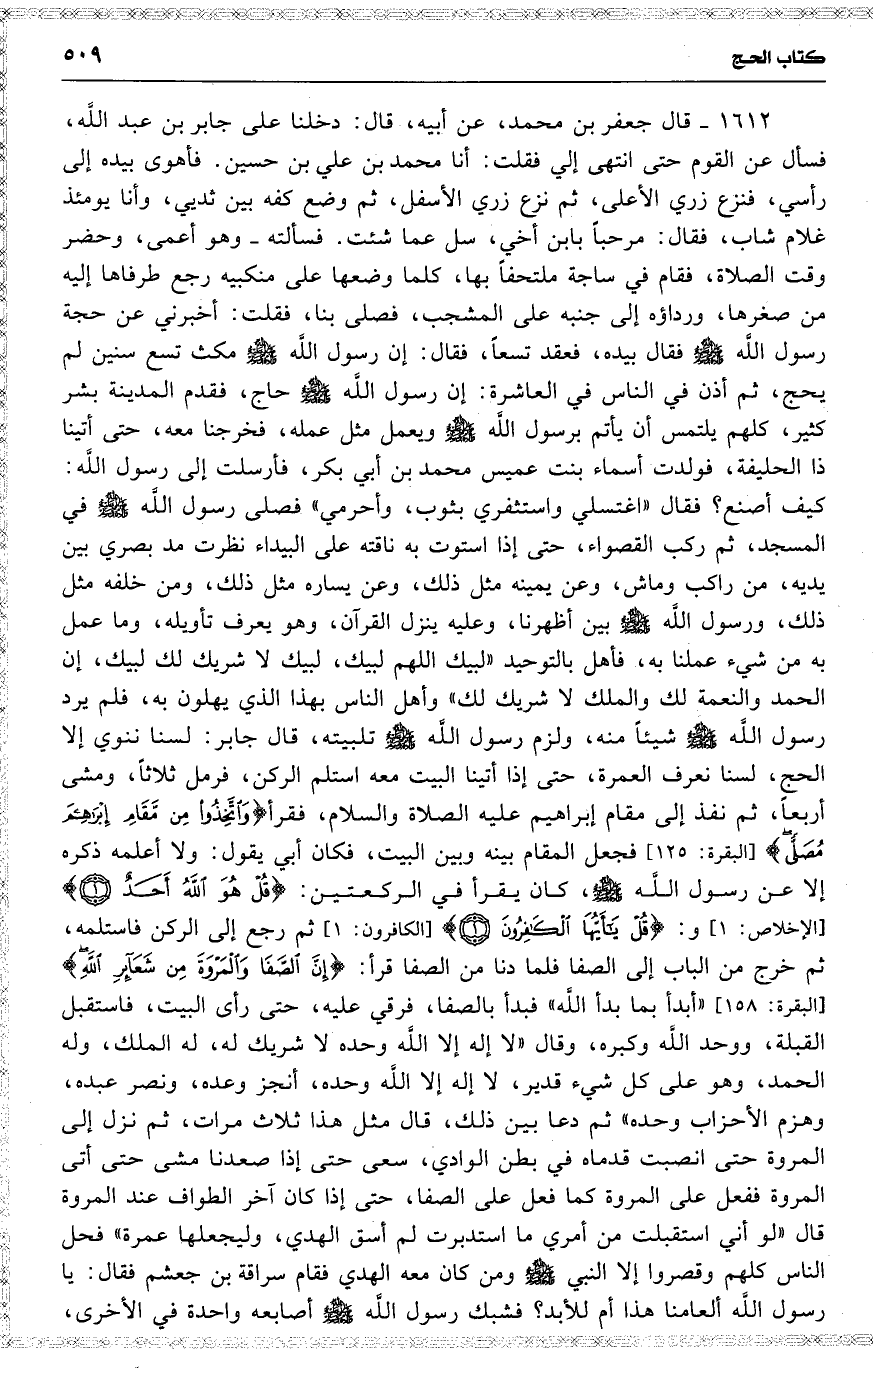 كتاب الحج ٥٠٩
١٦١٢ ـ قال جعفر بن محمد، عن أبيه، قال: دخلنا على جابر بن عبد اللَّه،
فسأل عن القوم حتى انتهى إلي فقلت: أنا محمد بن علي بن حسين. فأهوى بيده إلى
رأسي، فنزع زري الأعلى، ثم نزع زري الأسفل، ثم وضع كفه بين ثديي، وأنا يومئذ
غلام شاب، فقال: مرحباً بابن أخي، سل عما شئت. فسألته ـ وهو أعمى، وحضر
وقت الصلاة، فقام في ساجة ملتحفاً بها، كلما وضعها على منكبيه رجع طرفاها إليه
من صغرها، ورداؤه إلى جنبه على المشجب، فصلى بنا، فقلت: أخبرني عن حجة
رسول اللَّه ﷺ فقال بيده، فعقد تسعاً، فقال: إن رسول اللَّه ﷺ مكث تسع سنين لم
يحج، ثم أذن في الناس في العاشرة: إن رسول اللَّه ﷺ حاج، فقدم المدينة بشر
كثير، كلهم يلتمس أن يأتم برسول اللَّه ﷺ ويعمل مثل عمله، فخرجنا معه، حتى أتينا
ذا الحليفة، فولدت أسماء بنت عميس محمد بن أبي بكر، فأرسلت إلى رسول اللَّه:
كيف أصنع؟ فقال «اغتسلي واستثفري بثوب، وأحرمي» فصلى رسول اللَّه ﷺ في
المسجد، ثم ركب القصواء، حتى إذا استوت به ناقته على البيداء نظرت مد بصري بين
يديه، من راكب وماش، وعن يمينه مثل ذلك، وعن يساره مثل ذلك، ومن خلفه مثل
ذلك، ورسول اللَّه ﷺ بين أظهرنا، وعليه ينزل القرآن، وهو يعرف تأويله، وما عمل
به من شيء عملنا به، فأهل بالتوحيد «لبيك اللهم لبيك، لبيك لا شريك لك لبيك، إن
الحمد والنعمة لك والملك لا شريك لك» وأهل الناس بهذا الذي يهلون به، فلم يرد
رسول اللَّه ﷺ شيئاً منه، ولزم رسول اللَّه ﷺ تلبيته، قال جابر: لسنا ننوي إلا
الحج، لسنا نعرف العمرة، حتى إذا أتينا البيت معه استلم الركن، فرمل ثلاثاً، ومشى
أربعاً، ثم نفذ إلى مقام إبراهيم عليه الصلاة والسلام، فقرأ﴿وَٱتَّخِذُوا۟ مِن مَّقَامِ إِبْرَٰهِـۧمَ
مُصَلًّىۖ﴾ [البقرة: ١٢٥] فجعل المقام بينه وبين البيت، فكان أبي يقول: ولا أعلمه ذكره
إلا عن رسول اللَّه ﷺ، كان يقرأ في الركعتين: ﴿قُلْ هُوَ ٱللَّهُ أَحَدٌ ۝١﴾
[الإخلاص: ١] و: ﴿قُلْ يَـٰٓأَيُّهَا ٱلْكَـٰفِرُونَ ۝١﴾ [الكافرون: ١] ثم رجع إلى الركن فاستلمه،
ثم خرج من الباب إلى الصفا فلما دنا من الصفا قرأ: ﴿إِنَّ ٱلصَّفَا وَٱلْمَرْوَةَ مِن شَعَآئِرِ ٱللَّهِۖ﴾
[البقرة: ١٥٨] «أبدأ بما بدأ اللَّه» فبدأ بالصفا، فرقي عليه، حتى رأى البيت، فاستقبل
القبلة، ووحد اللَّه وكبره، وقال «لا إله إلا اللَّه وحده لا شريك له، له الملك، وله
الحمد، وهو على كل شيء قدير، لا إله إلا اللَّه وحده، أنجز وعده، ونصر عبده،
وهزم الأحزاب وحده» ثم دعا بين ذلك، قال مثل هذا ثلاث مرات، ثم نزل إلى
المروة حتى انصبت قدماه في بطن الوادي، سعى حتى إذا صعدنا مشى حتى أتى
المروة ففعل على المروة كما فعل على الصفا، حتى إذا كان آخر الطواف عند المروة
قال «لو أني استقبلت من أمري ما استدبرت لم أسق الهدي، وليجعلها عمرة» فحل
الناس كلهم وقصروا إلا النبي ﷺ ومن كان معه الهدي فقام سراقة بن جعشم فقال: يا
رسول اللَّه ألعامنا هذا أم للأبد؟ فشبك رسول اللَّه ﷺ أصابعه واحدة في الأخرى،